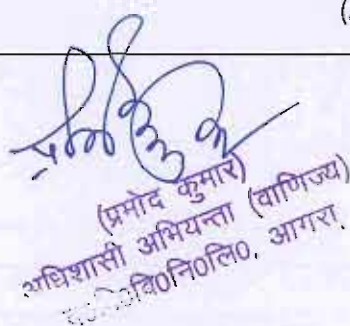 (प्रमोद कुमार)
अधिशासी अभियन्ता (वाणिज्य)
द०वि०वि०नि०लि०, आगरा.